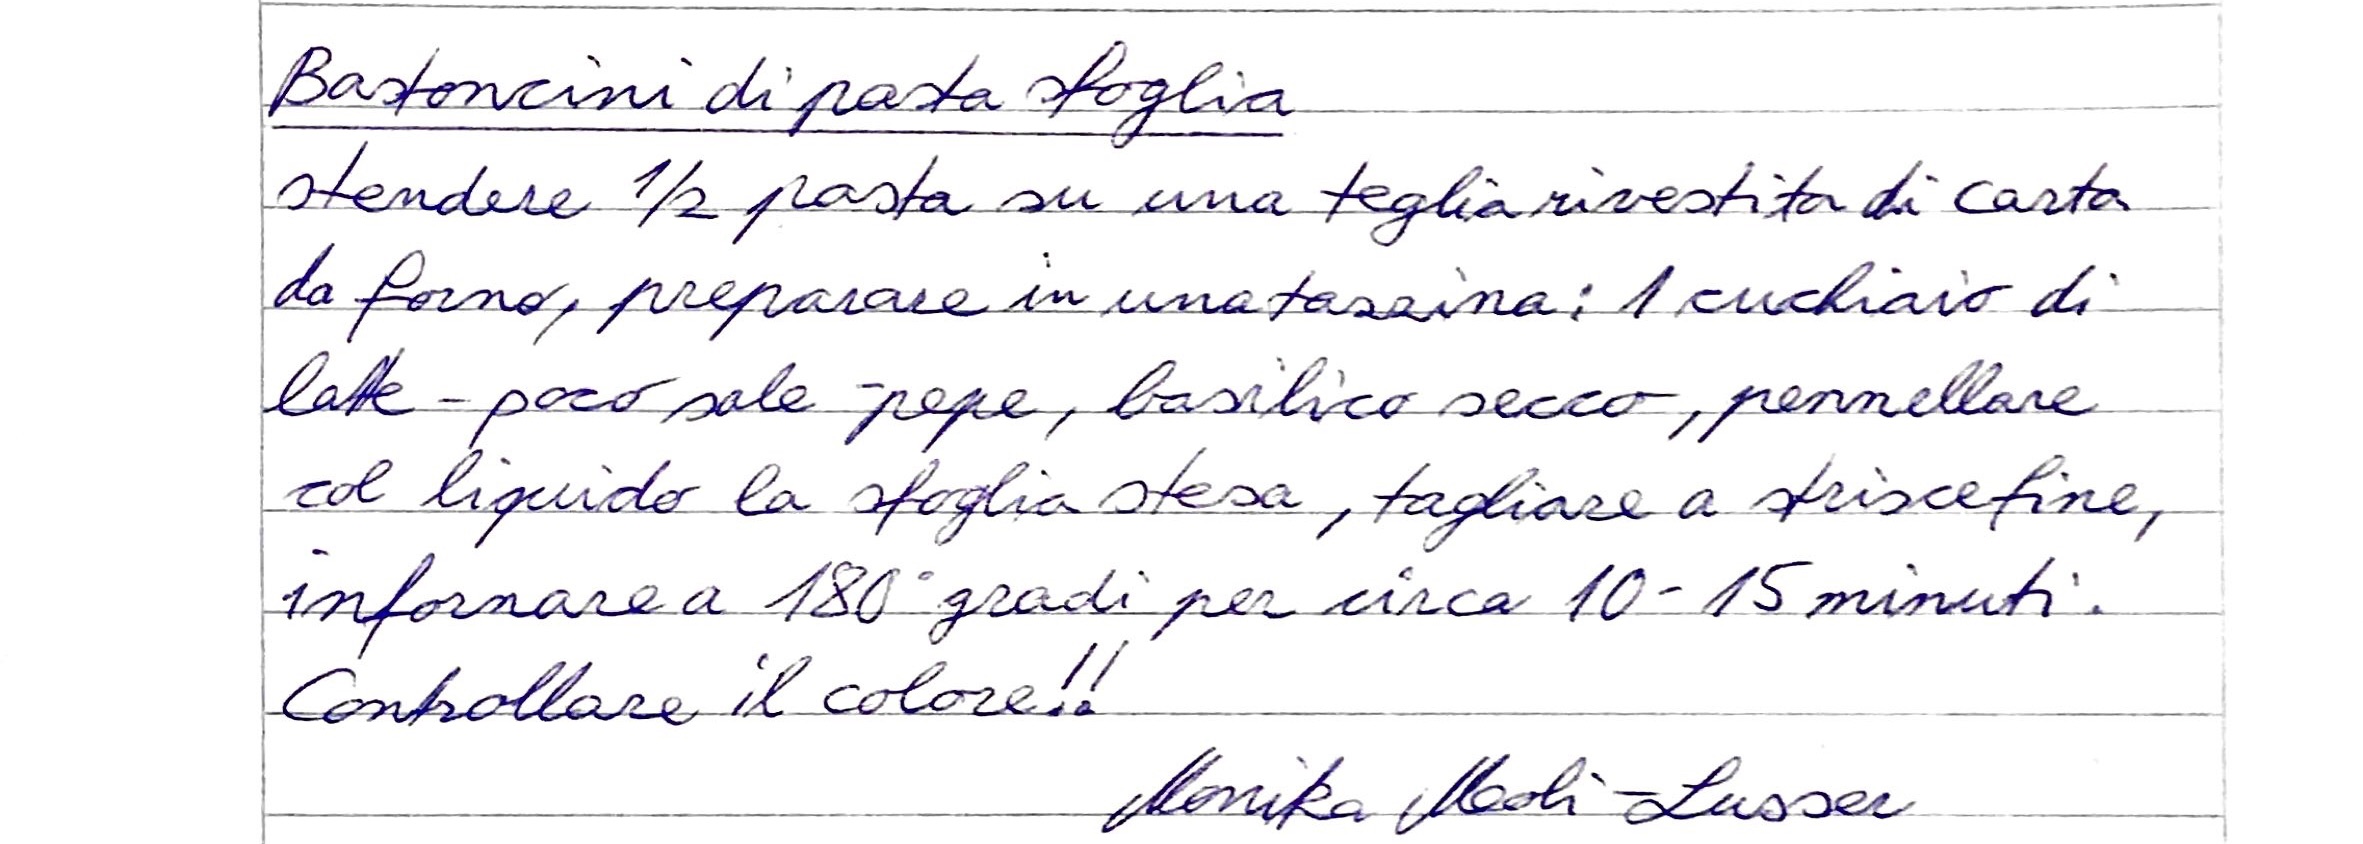 Bastoncini di pasta sfoglia
stendere 1/2 pasta su una teglia rivestita di carta
da forno, preparare in una tazzina: 1 cucchiaio di
latte - poco sale - pepe, basilico secco, pennellare
col liquido la sfoglia stesa, tagliare a strisce fine,
infornare a 180° gradi per circa 10 - 15 minuti.
Controllare il colore!!
Monika - Lusser